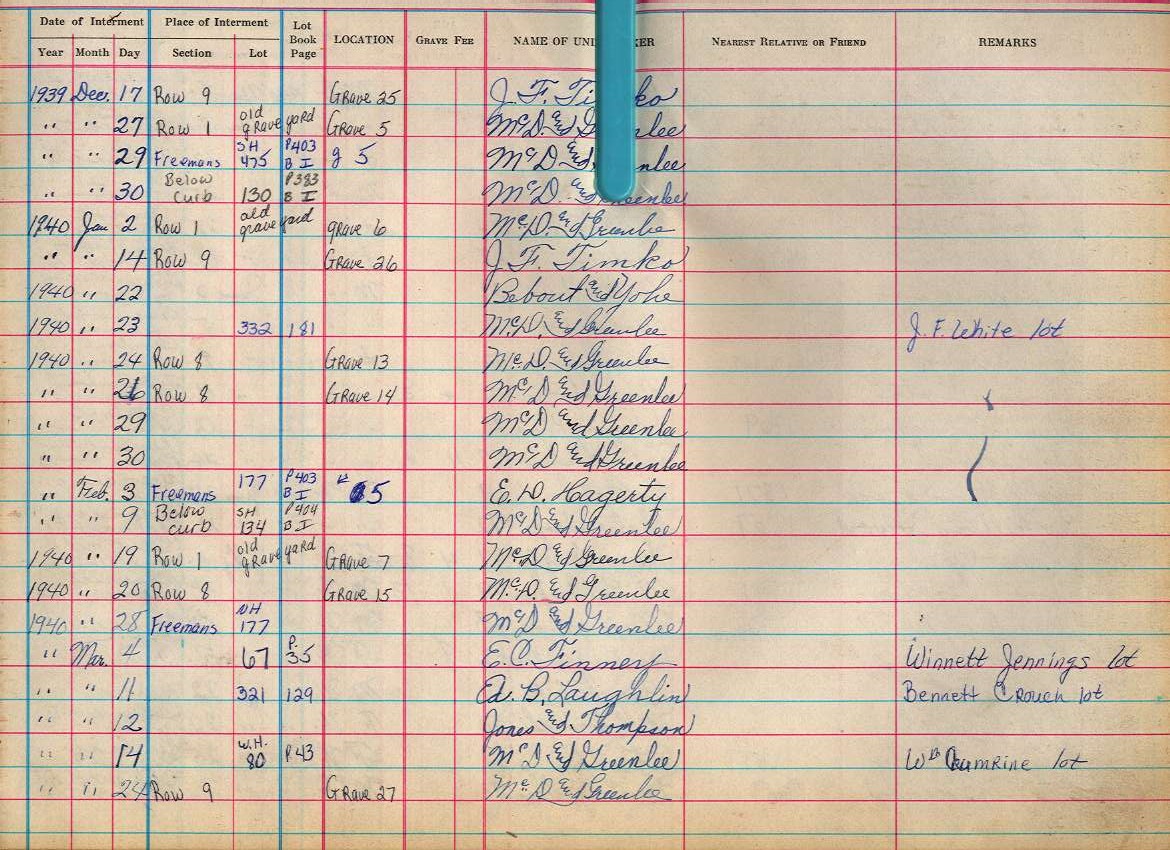 Date of Interment Place of Interment Lot Book Page LOCATION GRAVE FEE NAME OF UND KER NEAREST RELATIVE OR FRIEND REMARKS
Year Month Day Section Lot
1939 Dec. 17 Row 9 Grave 25 J. F. Ti ko
" " 27 Row 1 old grave yard Grave 5 McD. and G nlee
" " 29 Freemans SH 475 P403 B I g 5 McD and nlee
" " 30 Below curb 130 P383 B I McD. and Greenlee
1940 Jan 2 Row 1 old grave yard grave 6 McD. and Greenlee
" " 14 Row 9 Grave 26 J. F. Timko
1940 " 22 Bebout and Yohe
1940 " 23 332 181 McD. and Greenlee J. F. White lot
1940 " 24 Row 8 Grave 13 McD. and Greenlee
" " 26 Row 8 Grave 14 McD and Greenlee
" " 29 McD and Greenlee
" " 30 McD and Greenlee
" Feb. 3 Freemans 177 P403 B I 5 E. D. Hagerty
" " 9 Below curb SH 134 P404 B I McD and Greenlee
1940 " 19 Row 1 old grave yard Grave 7 McD. and Greenlee
1940 " 20 Row 8 Grave 15 McD. and Greenlee
1940 " 28 Freemans NH 177 McD and Greenlee
" Mar. 4 67 P. 35 E. C. Finney Winnett Jennings lot
" " 11 321 129 A. B. Laughlin Bennett Crouch lot
" " 12 Jones and Thompson
" " 14 W.H. 80 P.43 McD and Greenlee Wm Crumrine lot
" " 24 Row 9 Grave 27 McD and Greenlee